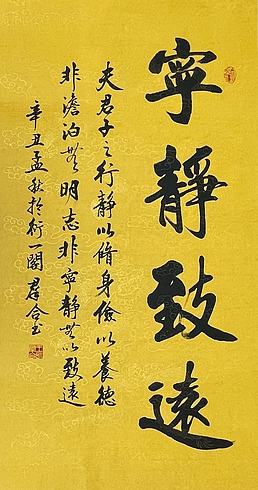 寧靜致遠
夫君子之行靜以脩身儉以養德
非澹泊無明志非寧靜無以致遠
辛丑孟秋於衍一閣群合書